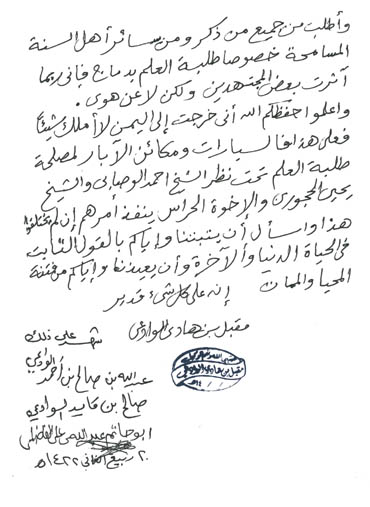 وأطلب من جميع من ذكر ومن سائر أهل السنة
المسامحة خصوصا طلبة العلم بدماج فإني ربما
آثرت بعض المجتهدين ولكن لا عن هوى.
واعلموا حفظكم الله أنى خرجت إلى اليمن لا أملك شيئا
فعلى هذا فالسيارات ومكائن الآبار لمصلحة
طلبة العلم تحت نظر الشيخ احمد الوصابي والشيخ
يحيى الحجوري والإخوة الحراس ينفذ أمرهم إن لم يختلفوا
هذا وأسأل أن يثبتنا وإياكم بالقول الثابت
فى الحياة الدنيا والآخرة وأن يعيذنا وإياكم من فتنة
المحيا والممات إنه على كل شيء قدير
مقبل بن هادي الوادعي
شهد على ذلك
عبد الله بن صالح بن أحمد الوادعي
صالح بن قايد الوادعي
ابو حاتم عبد الله بن علي الفاضلي
٢٠ ربيع الثاني ١٤٢٢هـ